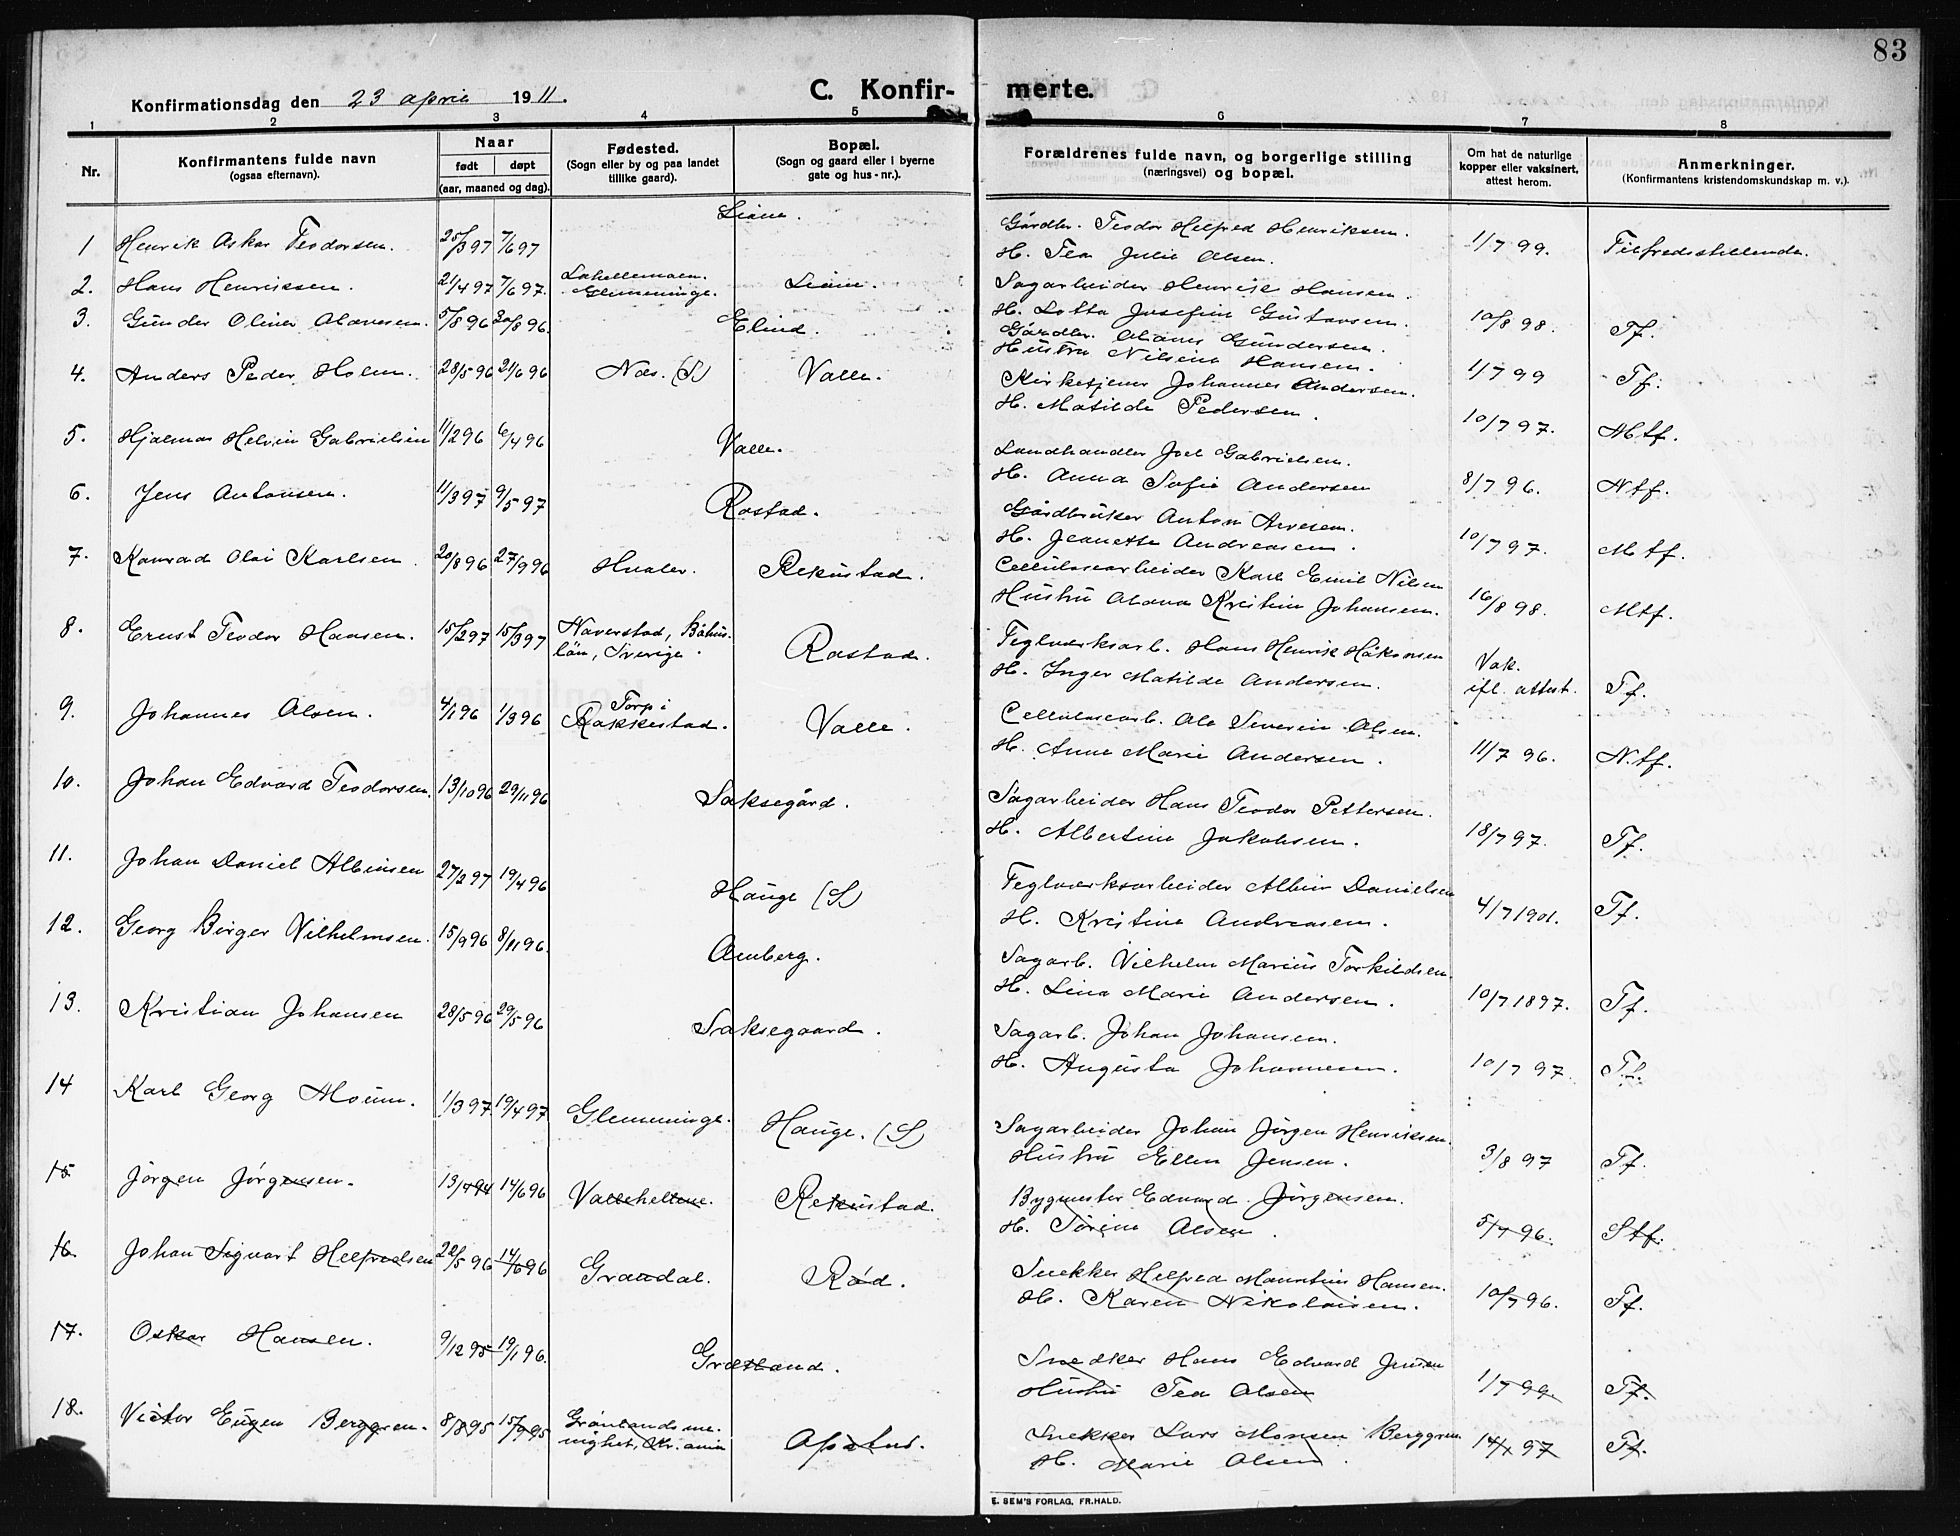 83
Konfirmationsdag den 23 april 1911.
C. Konfirmerte.
1 2 3 4 5 6 7 8
Nr.
Konfirmantens fulde navn
(ogsaa efternavn).
Naar
født døpt
(aar, maaned og dag).
Fødested.
(Sogn eller by og paa landet
tillike gaard).
Bopæl.
(Sogn og gaard eller i byerne
gate og hus-nr.).
Forældrenes fulde navn, og borgerlige stilling
(næringsvei) og bopæl.
Om hat de naturlige
kopper eller vaksinert,
attest herom.
Anmerkninger.
(Konfirmantens kristendomskundskap m. v.).
1 Henrik Oskar Teodorsen. 25/3 97 7/6 97 Liane. Gårdbr. Teodor Helfred Henriksen. 1/7 99. Tilfredsstillende.
H. Tea Julie Olsen.
2. Hans Henriksen. 21/4 97 7/6 97. Glemminge. Liane. Sagarbeider Henrik Hansen.
H. Lotta Josefine Gustavsen. 10/8 98. Tf.
3. Gunder Oliver Olavesen. 5/8 96 30/8 96. Elind. Gårdbr. Olaves Gundersen.
Hustru Nilsine Hansen. 1/7 99 Tf.
4. Anders Peder Holm. 28/5 96 21/6 96 Næs. (S) Valle. Kirketjener Johannes Andersen.
H. Matilde Pedersen. 10/7 97. Mtf.
5. Hjalmar Helvin Gabrielsen 11/2 96 6/4 96 Valle. Landhandler Joel Gabrielsen.
H. Anna Sofie Andersen 8/7 96. Ntf.
6. Jens Antonsen. 11/3 97 9/5 97 Rostad. Gårdbruker Anton Arvesen.
H. Jeanette Andreasen. 10/7 97. Mtf.
7. Konrad Olai Karlsen. 20/8 96 27/9 96 Hvaler. Rekustad. Cellulosearbeider Karl Emil Nilsen
Hustru Olava Kristine Johansen. 16/8 98. Mtf.
8. Ernst Teodor Hansen. 15/2 97 15/3 97 Naverstad, Båhus-
län, Sverige. Rostad. Teglverksarb. Hans Henrik Håkonsen
H. Inger Matilde Andersen. Vak.
ifl. attest. Tf.
9. Johannes Olsen. 4/1 96 1/3 96 Torp i
Rakkestad. Valle. Cellulosearb. Ole Severin Olsen.
H. Anne Marie Andersen. 11/7 96. Ntf.
10. Johan Edvard Teodorsen. 13/10 96 29/11 96 Saksegård. Sagarbeider Hans Teodor Pettersen.
H. Albertine Jakobsen. 18/7 97. Tf.
11. Johan Daniel Albinsen 27/2 97 19/4 96 Hauge (S) Teglverksarbeider Albin Danielsen
H. Kristine Andreasen. 4/7 1901. Tf.
12. Georg Birger Vilhelmsen. 15/9 96 8/11 96. Omberg. Sagarb. Vilhelm Marius Torkildsen
H. Lina Marie Andersen. 10/7 1897. Tf.
13. Kristian Johansen 28/5 96 29/5 96 Saksegaard. Sagarb. Johan Johansen.
H. Augusta Johannesen. 10/7 97. Tf.
14 Karl Georg Moum. 1/3 97. 19/4 97 Glemminge. Hauge. (S) Sagarbeider Johan Jörgen Henriksen.
Hustru Ellen Jensen. 3/8 97 Tf.
15 Jörgen Jörgensen. 13/4 94 14/6 96 Vallehellene. Rekustad. Bygmester Edvard Jörgensen.
H. Sörine Olsen. 5/7 96. Stf.
16. Johan Sigvart Helfredsen 22/5 96 14/6 96 Grandal. Rød. Snekker Helfred Mauritius Hansen.
H. Karen Nikolaisen. 10/7 96. Tf.
17. Oskar Hansen. 9/12 95 19/1 96. Græsland. Snedker Hans Edvard Jensen
Hustru Tea Olsen 1/7 99. Tf.
18. Victor Eugen Berggren. 8/8 95 15/9 95 Grønlands me-
nighet, Kr.ania Snekker Lars Monsen Berggren
H. Marie Olsen. 14/1 97 Tf.
E. SEM'S FORLAG, FR.HALD.